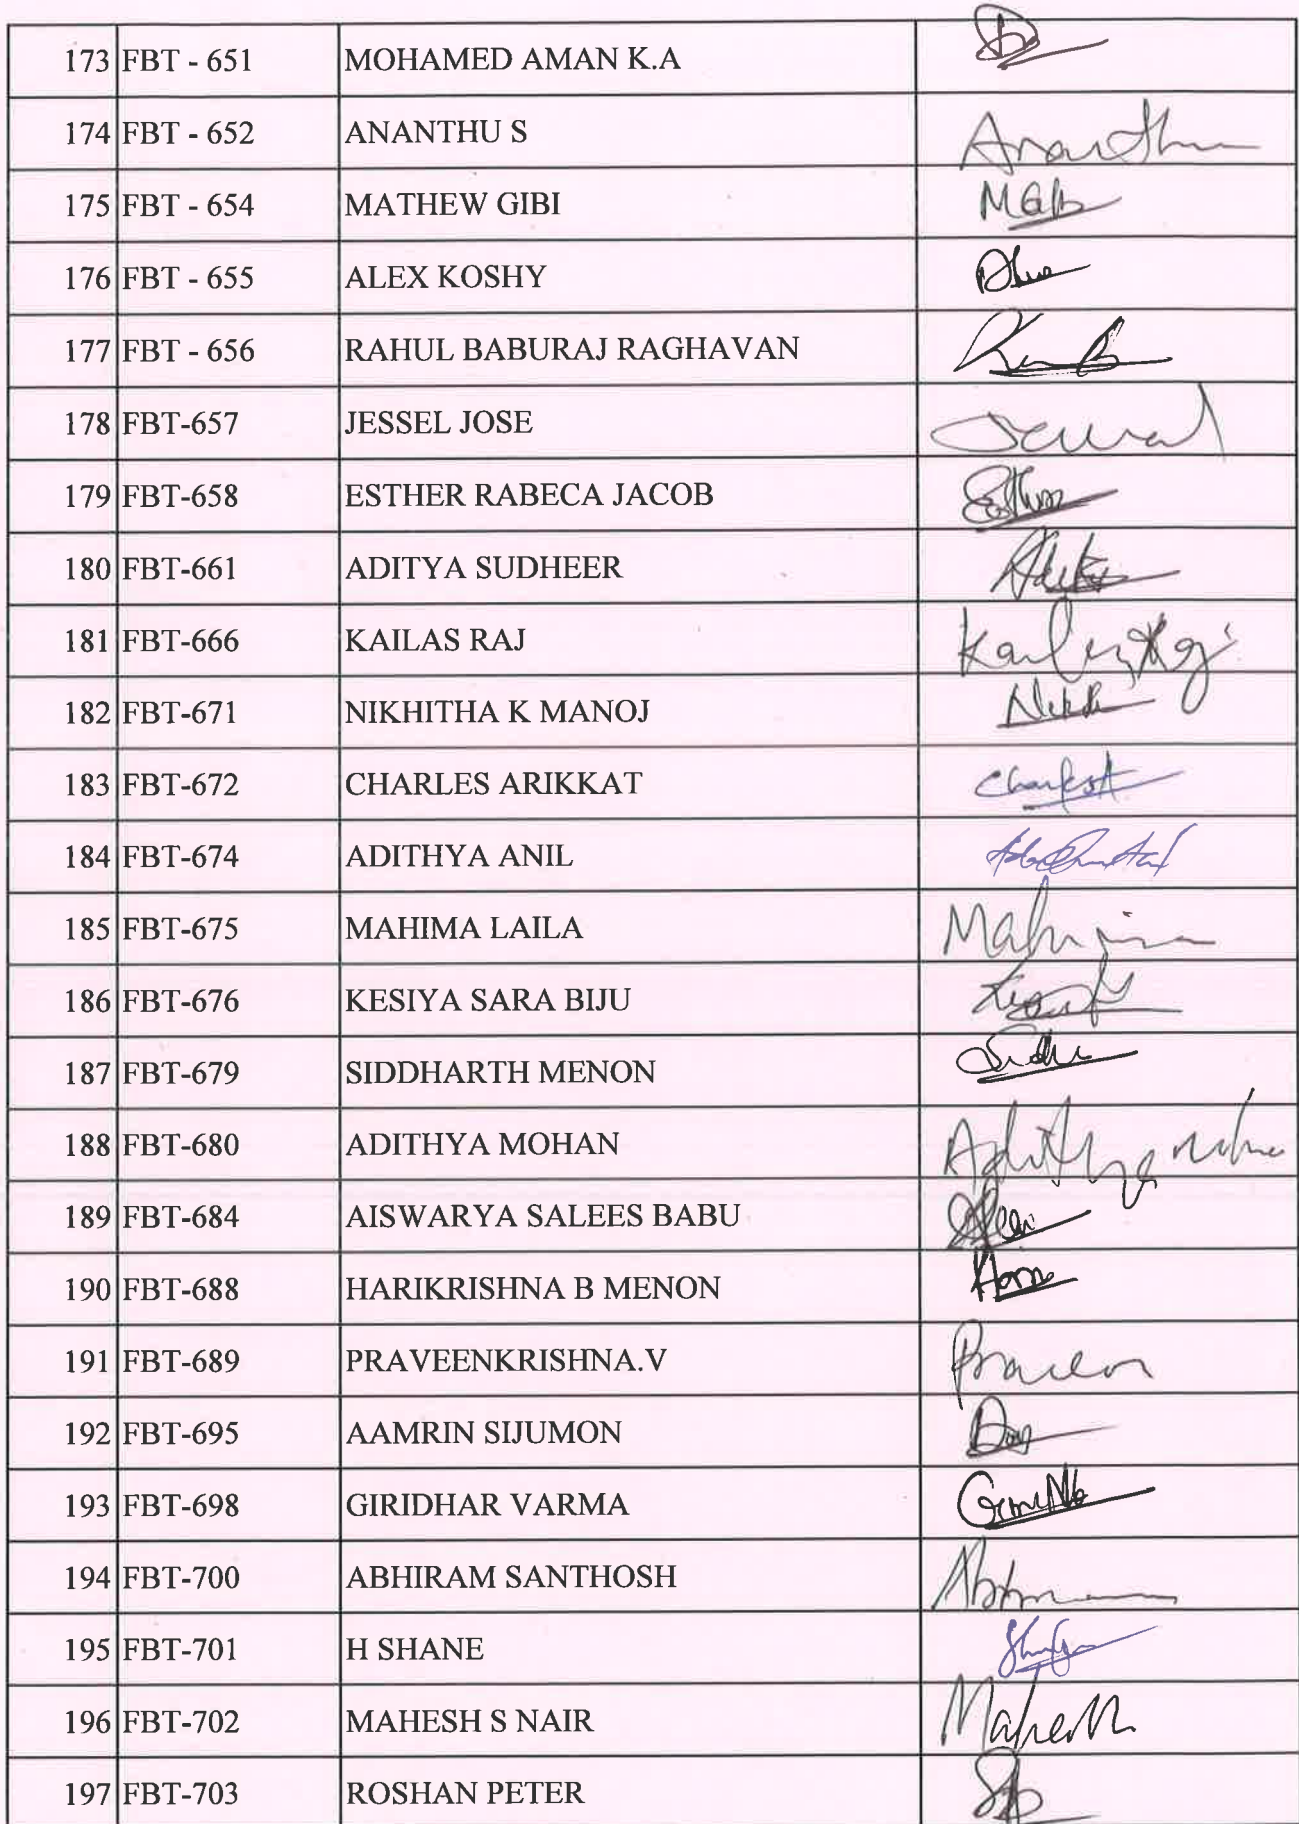 173 FBT - 651 MOHAMED AMAN K.A
174 FBT - 652 ANANTHU S Ananthu
175 FBT - 654 MATHEW GIBI
176 FBT - 655 ALEX KOSHY
177 FBT - 656 RAHUL BABURAJ RAGHAVAN
178 FBT-657 JESSEL JOSE
179 FBT-658 ESTHER RABECA JACOB Esther
180 FBT-661 ADITYA SUDHEER
181 FBT-666 KAILAS RAJ
182 FBT-671 NIKHITHA K MANOJ
183 FBT-672 CHARLES ARIKKAT
184 FBT-674 ADITHYA ANIL
185 FBT-675 MAHIMA LAILA Mahima
186 FBT-676 KESIYA SARA BIJU
187 FBT-679 SIDDHARTH MENON
188 FBT-680 ADITHYA MOHAN
189 FBT-684 AISWARYA SALEES BABU
190 FBT-688 HARIKRISHNA B MENON
191 FBT-689 PRAVEENKRISHNA.V Praveen
192 FBT-695 AAMRIN SIJUMON
193 FBT-698 GIRIDHAR VARMA
194 FBT-700 ABHIRAM SANTHOSH
195 FBT-701 H SHANE
196 FBT-702 MAHESH S NAIR Mahesh
197 FBT-703 ROSHAN PETER